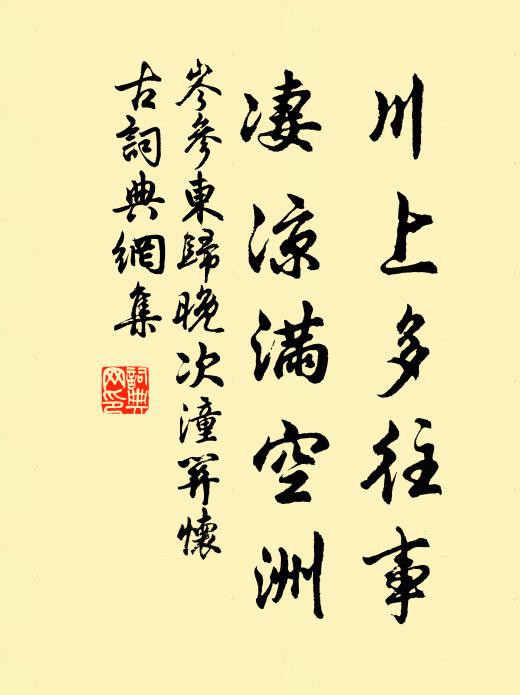 川上多往事
凄凉滿空洲
岑參東歸晚次潼關懷
古詞典網集
詞典
网印